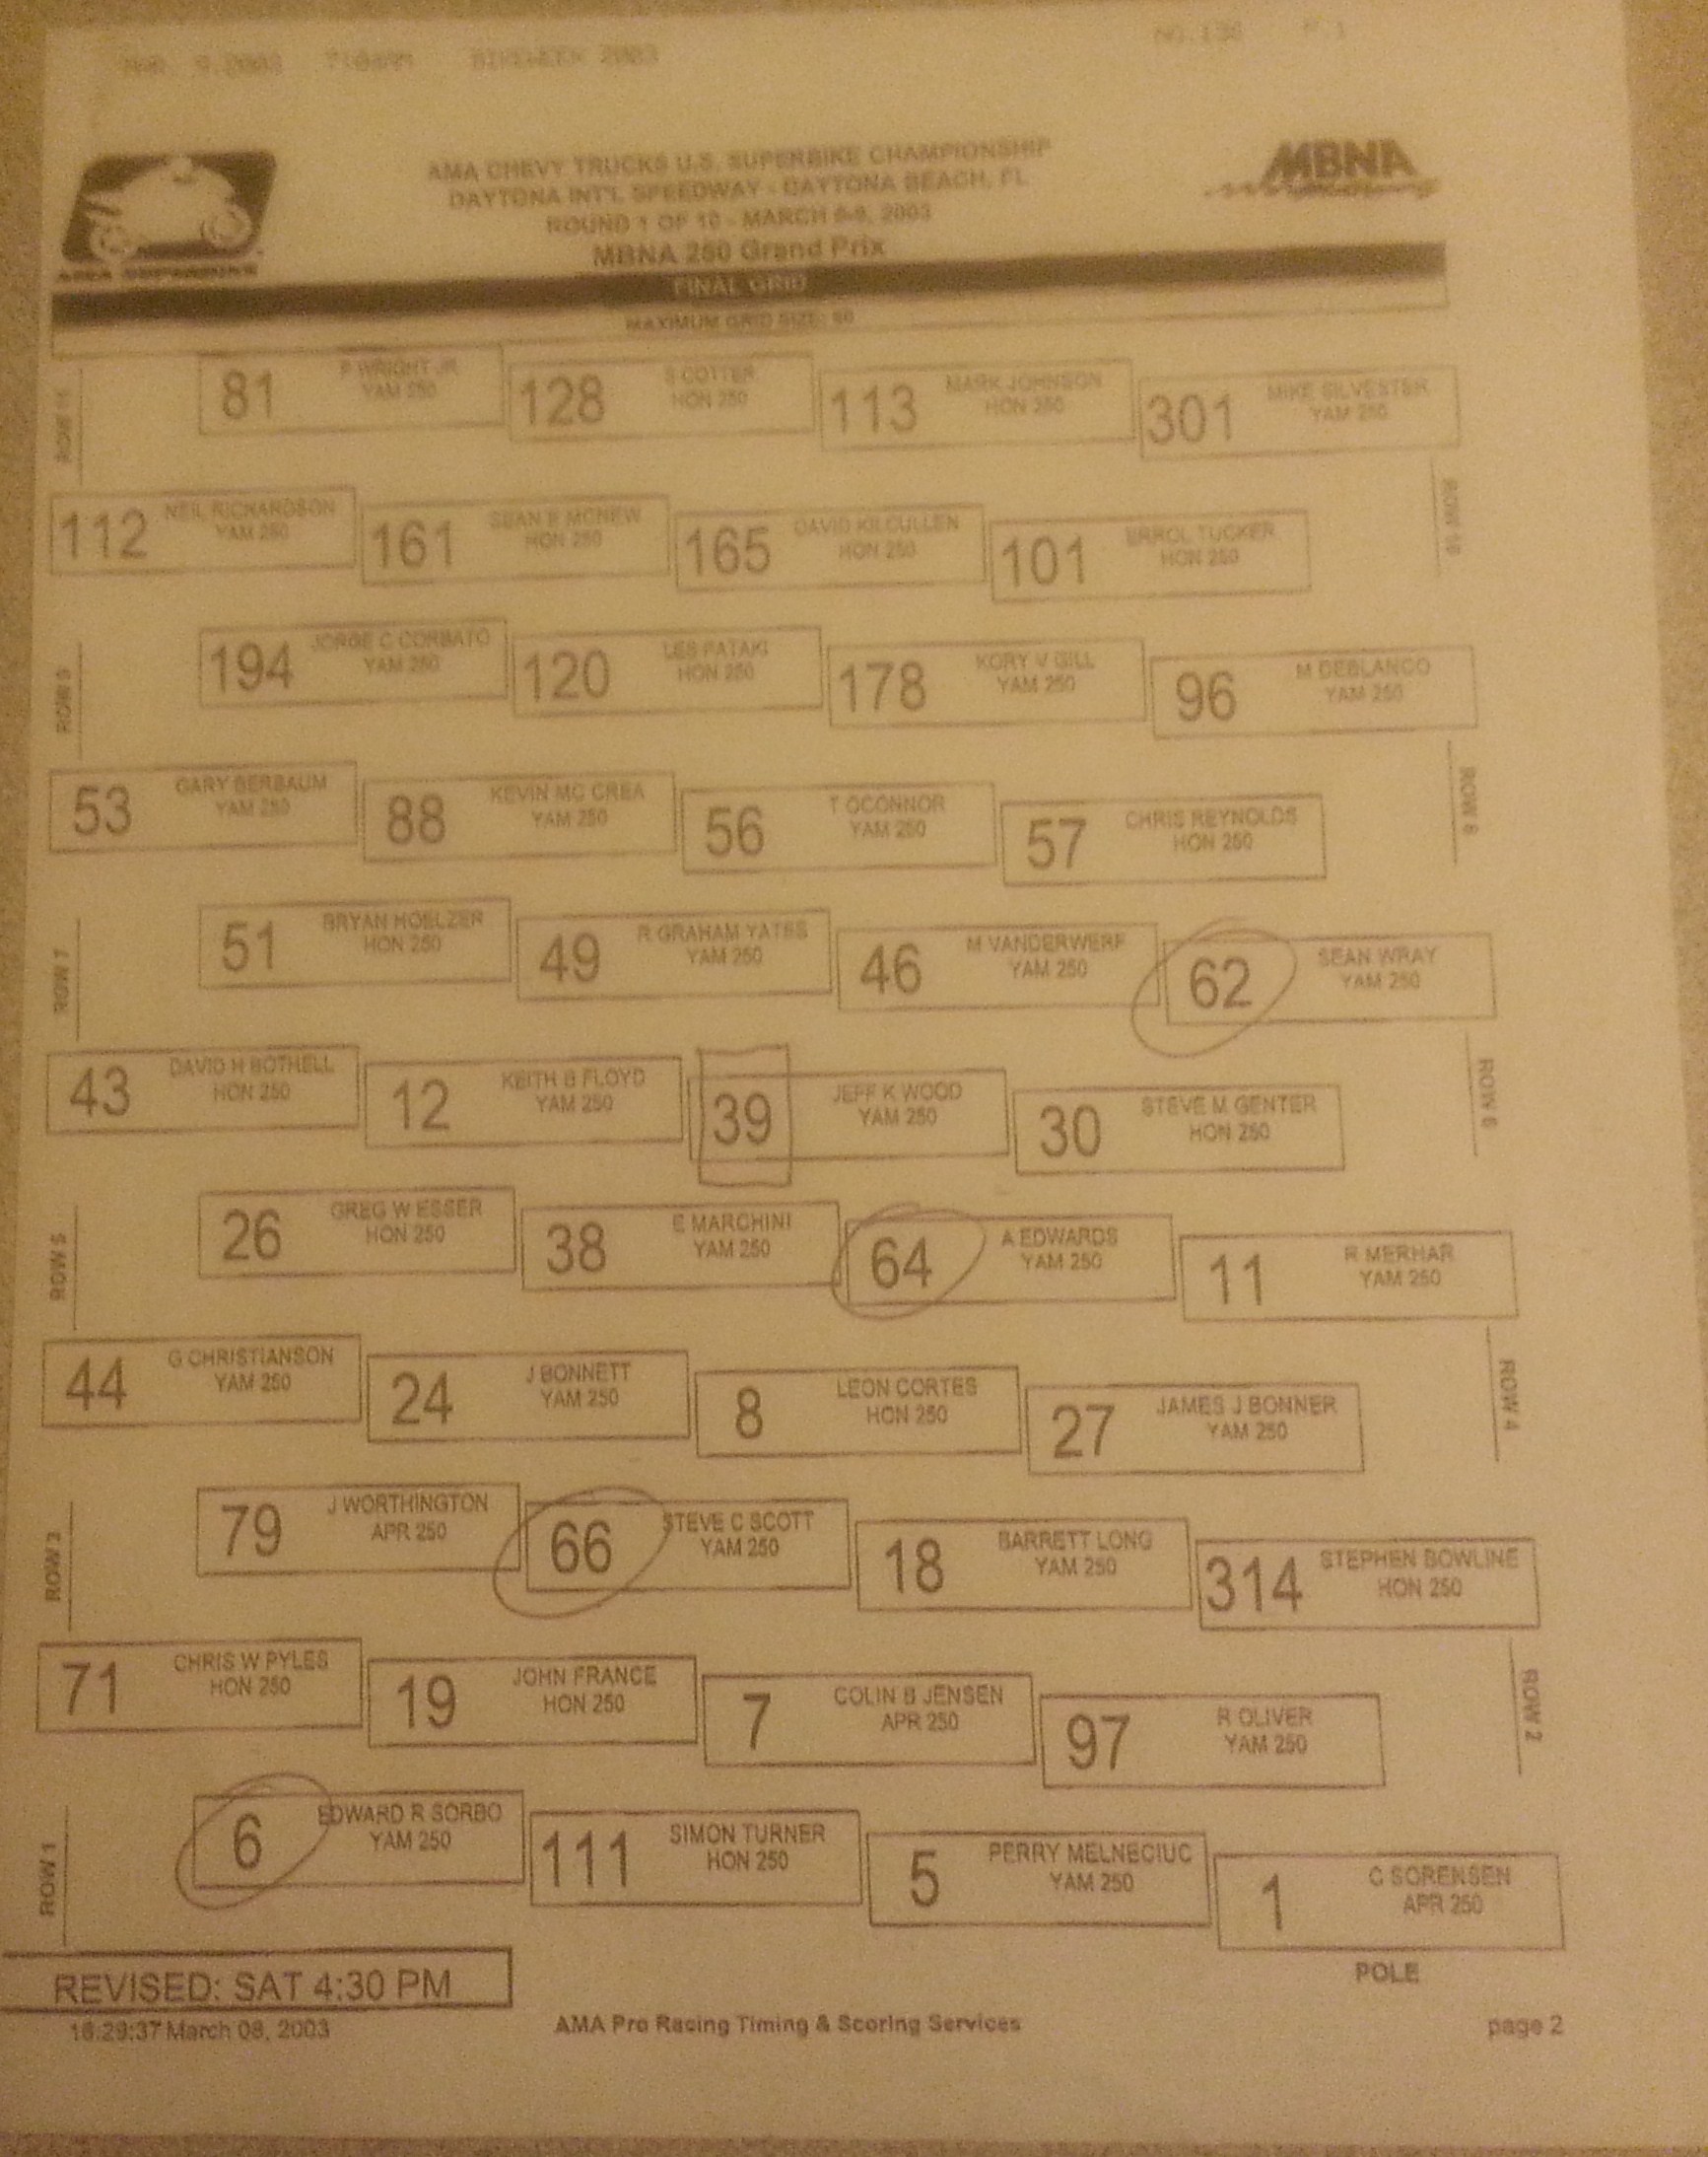 MAR. 9.2003 7:04AM BIKEWEEK 2003 NO.136 P.1
AMA SUPERBIKE
AMA CHEVY TRUCKS U.S. SUPERBIKE CHAMPIONSHIP
DAYTONA INT'L SPEEDWAY - DAYTONA BEACH, FL
ROUND 1 OF 10 - MARCH 2003
MBNA 250 Grand Prix
MBNA
FINAL GRID
MAXIMUM GRID SIZE:
ROW 11
81 P WRIGHT JR YAM 250
128 S COTTER HON 250
113 MARK JOHNSON HON 250
301 MIKE SILVESTER YAM 250
112 NEIL RICHARDSON YAM 250
161 SEAN B MCNEW HON 250
165 DAVID KILCULLEN HON 250
101 ERROL TUCKER HON 250
ROW 10
ROW 9
194 JORGE C CORBATO YAM 250
120 LES PATAKI HON 250
178 KORY V GILL YAM 250
96 M DEBLANCO YAM 250
53 GARY BERBAUM YAM 250
88 KEVIN MC CREA YAM 250
56 T OCONNOR YAM 250
57 CHRIS REYNOLDS HON 250
ROW 8
ROW 7
51 BRYAN HOELZER HON 250
49 R GRAHAM YATES YAM 250
46 M VANDERWERF YAM 250
62 SEAN WRAY YAM 250
43 DAVID H BOTHELL HON 250
12 KEITH B FLOYD YAM 250
39 JEFF K WOOD YAM 250
30 STEVE M GENTER HON 250
ROW 6
ROW 5
26 GREG W ESSER HON 250
38 E MARCHINI YAM 250
64 A EDWARDS YAM 250
11 R MERHAR YAM 250
44 G CHRISTIANSON YAM 250
24 J BONNETT YAM 250
8 LEON CORTES HON 250
27 JAMES J BONNER YAM 250
ROW 4
ROW 3
79 J WORTHINGTON APR 250
66 STEVE C SCOTT YAM 250
18 BARRETT LONG YAM 250
314 STEPHEN BOWLINE HON 250
71 CHRIS W PYLES HON 250
19 JOHN FRANCE HON 250
7 COLIN B JENSEN APR 250
97 R OLIVER YAM 250
ROW 2
ROW 1
6 EDWARD R SORBO YAM 250
111 SIMON TURNER HON 250
5 PERRY MELNECIUC YAM 250
1 C SORENSEN APR 250
POLE
REVISED: SAT 4:30 PM
16:29:37 March 08, 2003
AMA Pro Racing Timing & Scoring Services
page 2